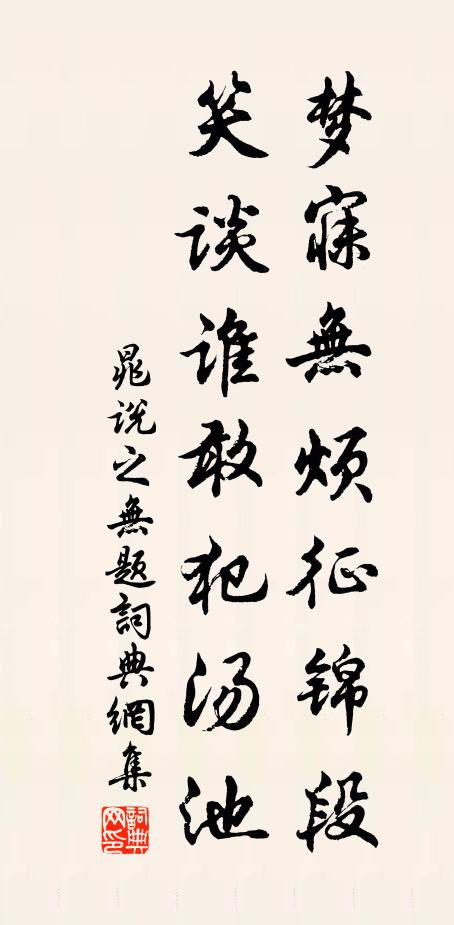 梦寐無烦征锦段
笑谈谁敢犯汤池
晁说之無题詞典網集
詞典網印